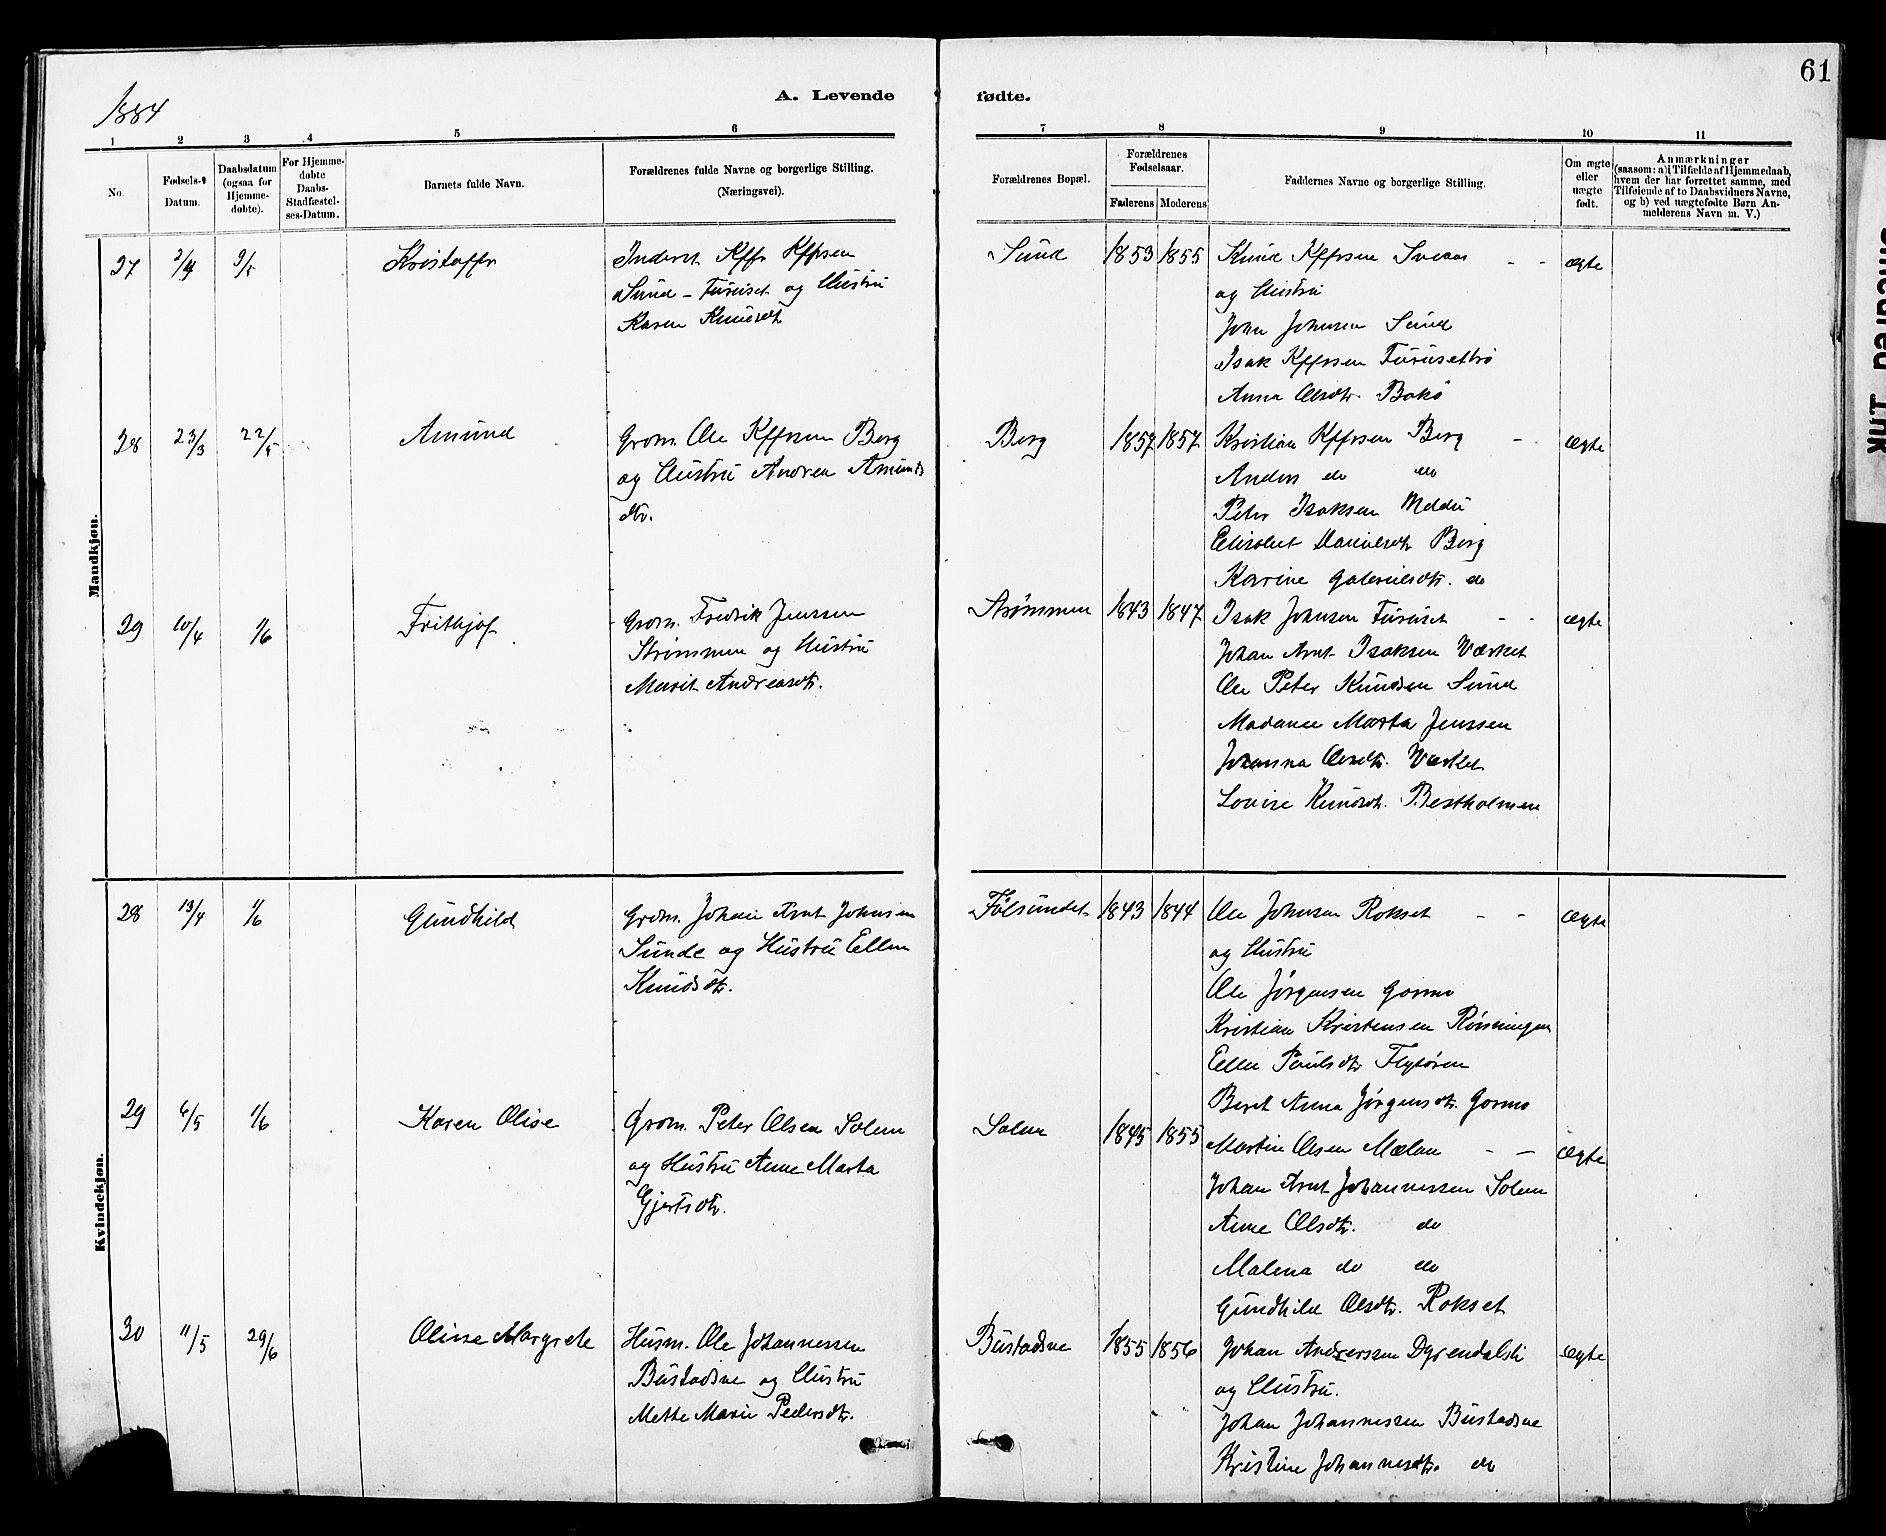 1884
A. Levende fødte.
61
1 2 3 4 5 6 7 8 9 10 11
No.
Fødsels-Datum.
Daabsdatum (ogsaa for Hjemme-døbte).
For Hjemme-døbte Daabs-Stadfæstel-ses-Datum.
Barnets fulde Navn.
Forældrenes fulde Navne og borgerlige Stilling. (Næringsvei).
Forældrenes Bopæl.
Forældrenes Fødselsaar.
Faderens Moderens
Faddernes Navne og borgerlige Stilling.
Om ægte eller uægte født.
Anmærkninger
(saasom: a) i Tilfælde af Hjemmedaab, hvem der har forrettet samme, med Tilføiende af to Daabsvidners Navne, og b) ved uægtefødte Børn An-melderens Navn m. V.)
Mandkjøn.
27 2/4 9/5 Kristoffr
Inderst Kffr Kffrsen
Sund - Furuset og Hustru
Karen Knudsdt
Sund 1853 1855
Knud Kffrsen Sveaas - - ægte
og Hustru
John Johnsen Sund
Isak Kffrsen Furusettrø
Anna Olsdtr. Bakø
28 23/3 22/5 Amund
Grdm. Ole Kffrsen Berg
og Hustru Andrea Amunds
dtr.
Berg 1857 1857
Kristian Kffrsen Berg - ægte
Anders do do
Peter Isaksen Meldu
Elisabet Danielsdt Berg
Karine Gabrielsdtr. do
29 10/4 1/6 Frithjof
Grdm. Fredrik Jenssen
Strømmen og Hustru
Marit Andreasdtr.
Strømmen 1843 1847
Isak Johnsen Furuset - - ægte
Johan Arnt Isaksen Værket
Ole Peter Knudsen Sund
Madame Marta Jenssen
Johanna Olsdtr. Værket
Lovise Knudsdt. Bestholmen
Kvindekjøn.
28 13/4 1/6 Gundhild
Grdm. Johan Arnt Johnsen
Sunde og Hustru Ellen
Knudsdtr.
Følsundet 1843 1844
Ole Johnsen Rokset - - ægte
og Hustru
Ole Jørgensen Gormo
Kristian Kristensen Rønningen
Ellen Paulsdtr Flytøren
Beret Anna Jørgensdt. Gormo
29 6/5 1/6 Karen Olise
Grdm. Peter Olsen Solem
og Hustru Anne Marta
Gjertsdtr.
Solem 1845 1855
Martin Olsen Mælan - - ægte
Johan Arnt Johannessen Solem
Anne Olsdtr. do
Malena do do
Gundhild Olsdtr. Rokset
30 11/5 29/6 Oline Margrete
Husm. Ole Johannessen
Bustadsve og Hustru
Mette Marie Pedersdtr.
Bustadsve 1855 1856
Johan Anderssen Dyrendalsli ægte
og Hustru.
Johan Johannessen Bustadsve
Kristine Johannesdtr. do